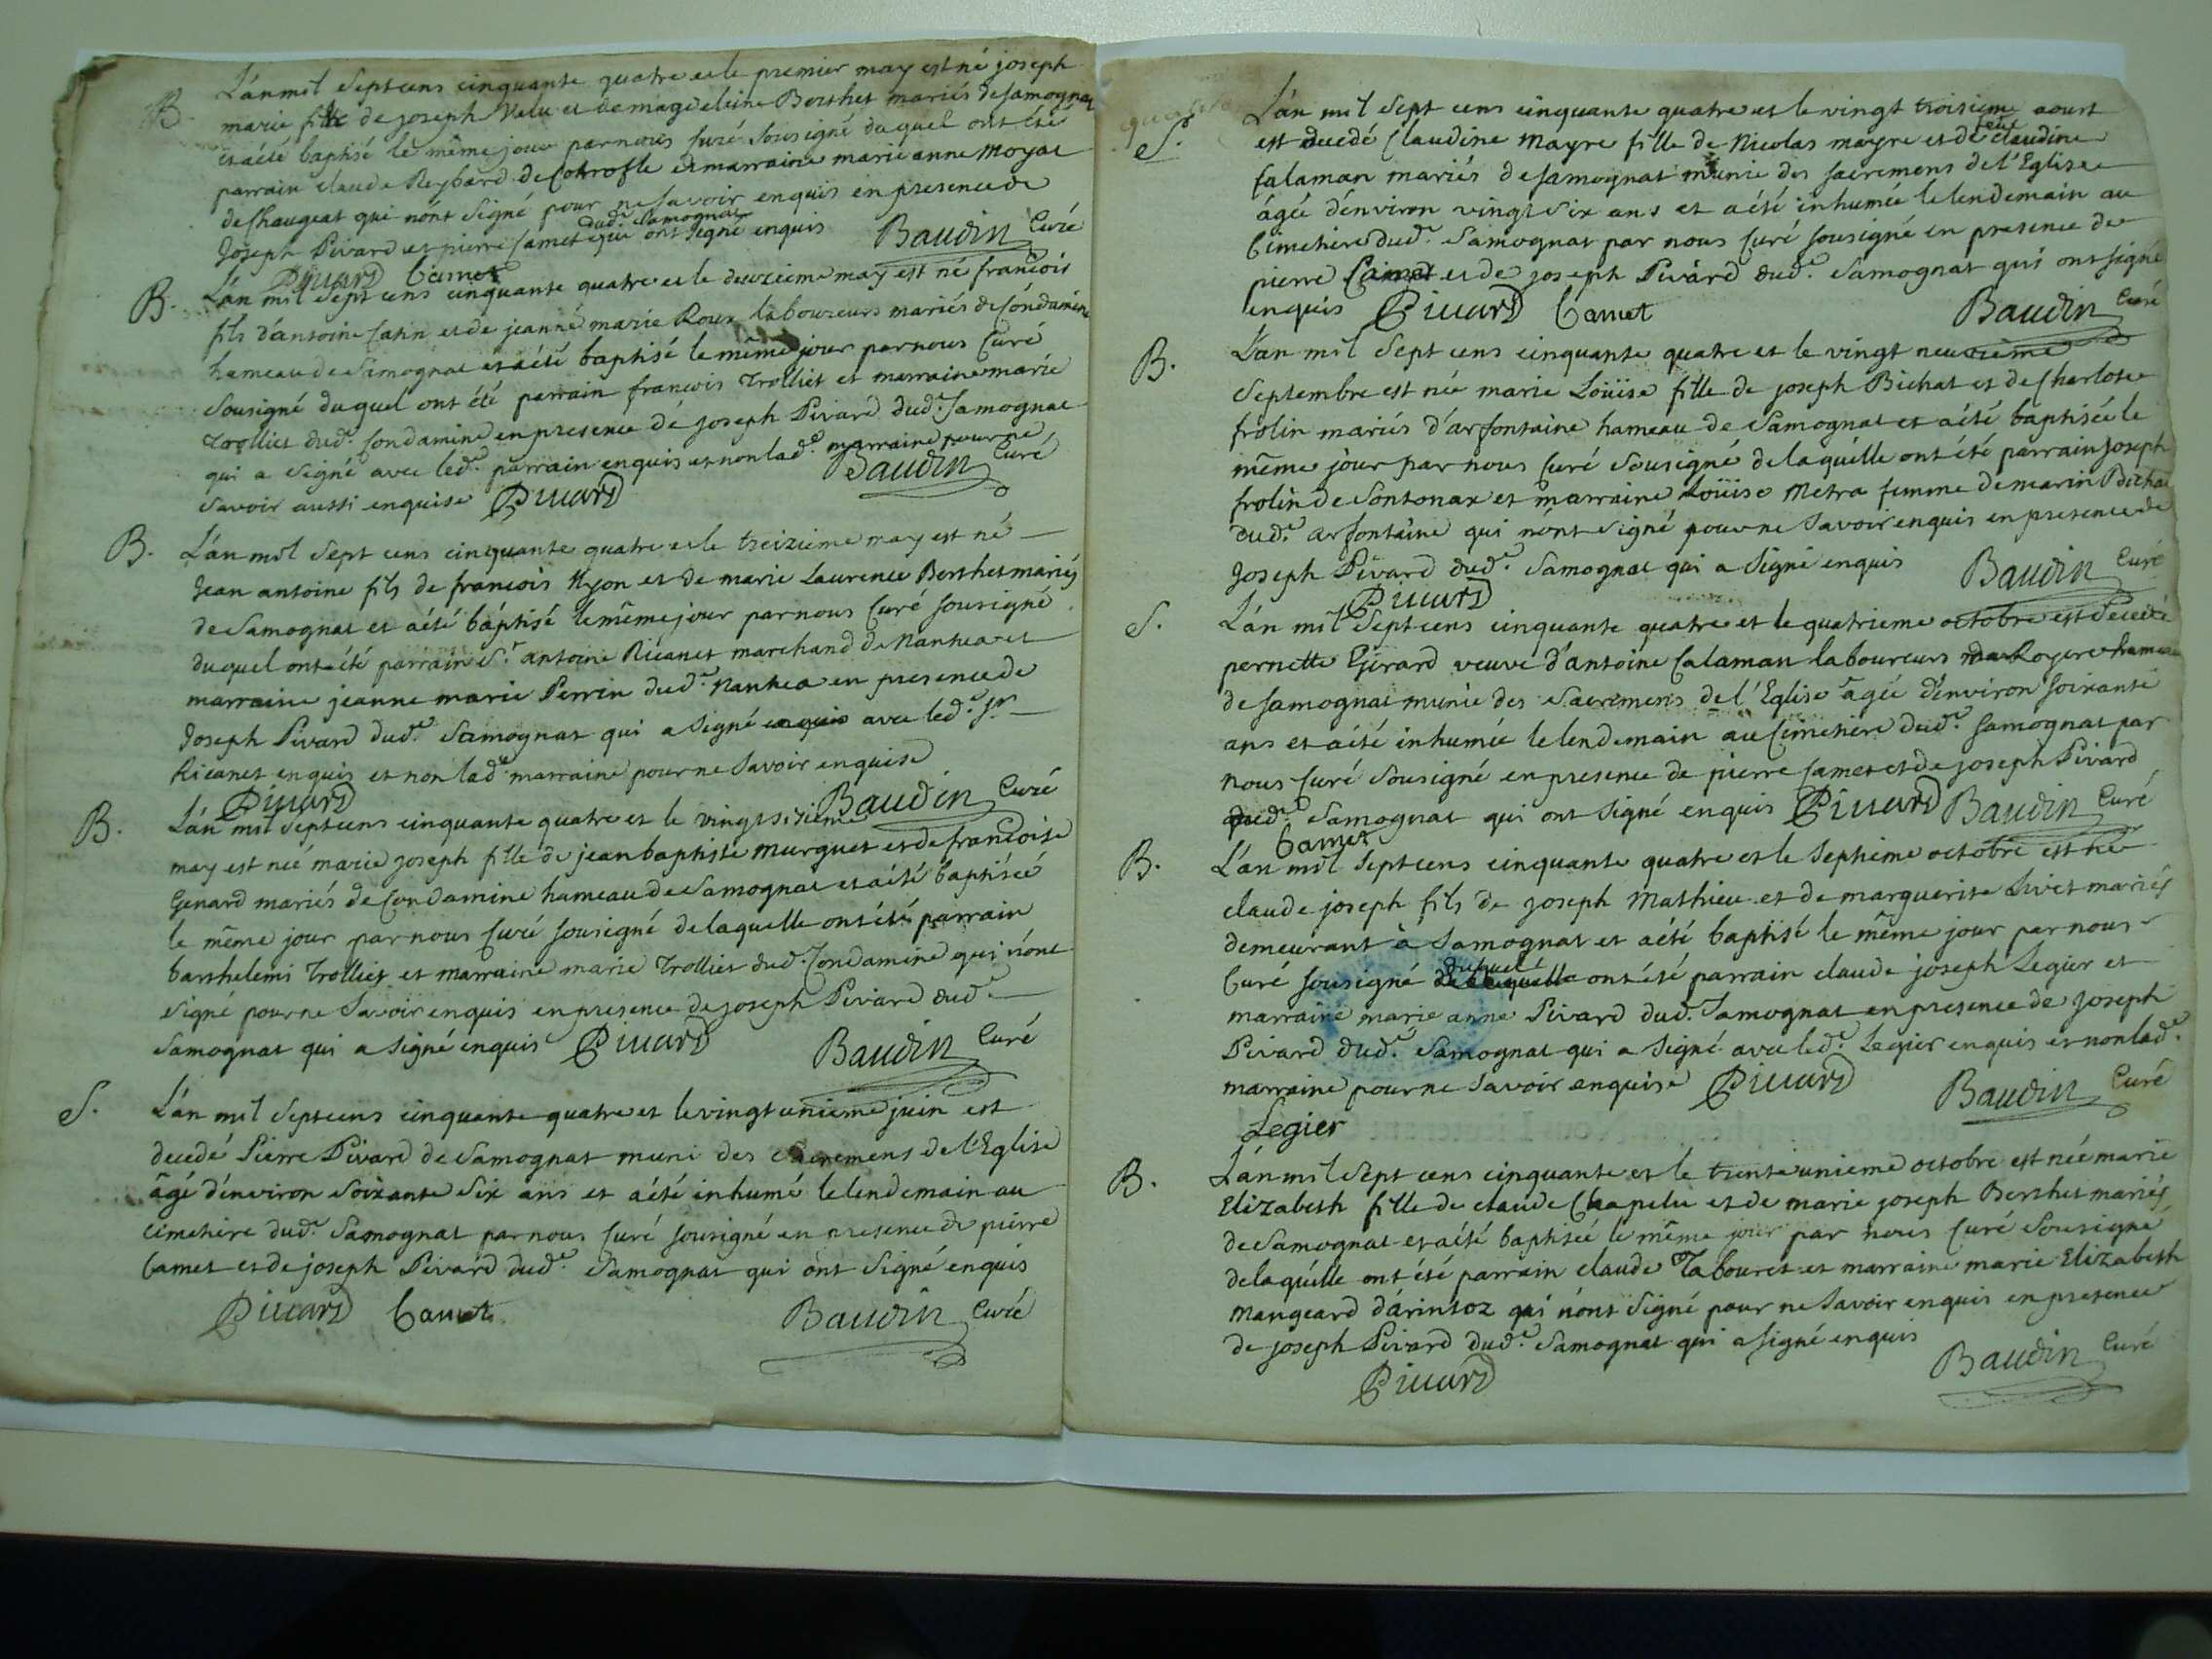 B. L'án mil Sept cens cinquante quatre et le premier may est né joseph
marie fils de joseph Velu et de magdeleine Berthet mariés de Samognat
et a été baptisé le même jour par nous curé Sousigné duquel ont été
parrain claude Reybard de et marraine marie anne Moyat
de Chaugeat qui n'ónt Signé pour ne savoir enquis en presence de
dud.e Samognat
Joseph Pivard et pierre Camet qui ont Signé enquis Baudin Curé
Pivard Camet
B. L'án mil Sept cens cinquante quatre et le deuxieme may est né francois
fils d'antoine Catin et de jeanne marie Roux laboureurs mariés de Cóndamine
hameau de Samognat et a été baptisé le même jour par nous Curé
Sousigné duquel ont été parrain francois Trolliet et marraine marie
Trolliet dud.e Condamine en presence de Joseph Pivard dud.e Samognat
qui a Signé avec led.e parrain enquis et non lad.e marraine pour ne
savoir aussi enquise Pivard Baudin Curé
B. L'án mil Sept cens cinquante quatre et le treizieme may est né
Jean antoine fils de francois Hyon et de marie Laurence Berthet mariés
de Samognat et a été báptisé le même jour par nous Curé sousigné
duquel ont été parrain S.r antoine Ricanet marchand de Nantua et
marraine jeanne marie Perrin dud.e Nantua en presence de
Joseph Pivard dud.e Samognat qui a Signé enquis avec led.e S.r
Ricanet enquis et non lad.e marraine pour ne Savoir enquise
Pivard Baudin Curé
B. L'án mil Sept cens cinquante quatre et le vingt sixieme
may est née marie joseph fille de jean baptiste Murguet et de francoise
Genard mariés de Condamine hameau de Samognat et a été baptisée
le même jour par nous Curé sousigné de laquelle ont été parrain
barthelemi Trolliet et marraine marie Trolliet dud.e Condamine qui n'ónt
signé pour ne Savoir enquis en presence de joseph Pivard dud.e
Samognat qui a Signé enquis Pivard Baudin Curé
S. L'án mil Sept cens cinquante quatre et le vingt unieme juin est
decedé Pierre Pivard de Samognat muni des Sacremens de l'Eglise
âgé d'énviron Soixante Six ans et a été inhumé le lendemain au
cimetiere dud.e Samognat par nous Curé sousigné en presence de pierre
Camet et de joseph Pivard dud.e Samognat qui ont Signé enquis
Pivard Camet Baudin Curé
S. L'án mil Sept cens cinquante quatre et le vingt troisieme aoust
est decedé Claudine Mayre fille de Nicolas mayre et de claudine
Calaman mariés de Samognat munie des sacremens de l'Eglise
âgée d'énviron vingt Six ans et a été inhumée le lendemain au
Cimetiere dud.e Samognat par nous Curé sousigné en presence de
pierre Camet et de joseph Pivard dud.e Samognat qui ont signé
enquis Pivard Camet Baudin Curé
B. L'án mil Sept cens cinquante quatre et le vingt neuvieme
Septembre est née marie Loüise fille de joseph Bichat et de Charlote
frolin mariés d'arfontaine hameau de Samognat et a été baptisée le
même jour par nous Curé Sousigné de laquélle ont été parrain Joseph
frolin de Sontonax et marraine Loüise Metra femme de marin Bichat
dud.e arfontaine qui n'ónt signé pour ne Savoir enquis en presence de
Joseph Pivard dud.e Samognat qui a Signé enquis Baudin Curé
Pivard
S. L'án mil Sept cens cinquante quatre et le quatrieme octobre est decedée
pernette Girard veuve d'antoine Calaman laboureurs hameau
de Samognat munie des Sacremens de l'Eglise âgée d'énviron soixante
ans et a été inhumée le lendemain au Cimetiere dud.e Samognat par
nous Curé Sousigné en presence de pierre Camet et de joseph Pivard
dud.e Samognat qui ont Signé enquis Pivard Baudin Curé
Camet
B. L'án mil Sept cens cinquante quatre et le Septieme octobre est né
claude joseph fils de joseph Mathieu et de marguerite Livet mariés
demeurant à Samognat et a été baptisé le même jour par nous
duquel
Curé sousigné de laquélle ont été parrain claude joseph Legier et
marraine marie anne Pivard dud.e Samognat en presence de joseph
Pivard dud.e Samognat qui a Signé avec led.e Legier enquis et non lad.e
marraine pour ne Savoir enquise Pivard Baudin Curé
Legier
B. L'án mil Sept cens cinquante et le trente unieme octobre est née marie
Elizabeth fille de claude Chapelu et de marie joseph Berthet mariés
de Samognat et a été baptisée le même jour par nous Curé Sousigné
de laquélle ont été parrain claude Tabouret et marraine marie Elizabeth
Mangeard d'árintoz qui n'ónt Signé pour ne Savoir enquis en presence
de joseph Pivard dud.e Samognat qui a signé enquis
Pivard Baudin Curé